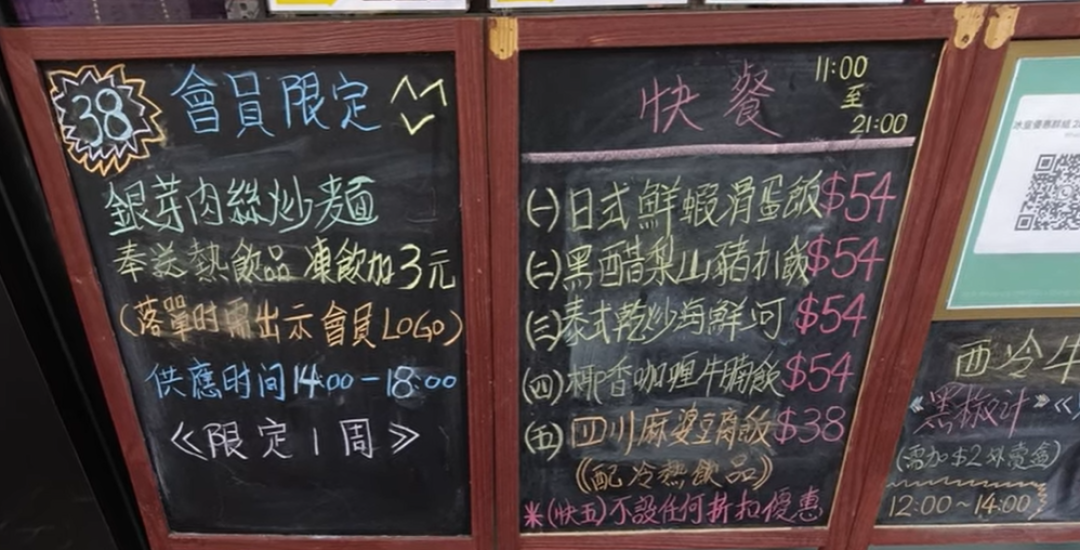 38 會員限定
銀芽肉絲炒麵
奉送熱飲品 凍飲加3元
(落單时需出示會員LOGO)
供應时间14:00-18:00
《限定1周》
快餐 11:00
至
21:00
(一)日式鮮蝦滑蛋飯$54
(二)黑醋梨山豬扒飯$54
(三)泰式乾炒海鮮河 $54
(四)椰香咖喱牛腩飯$54
(五)四川麻婆豆腐飯$38
(配冷熱飲品)
米(快五)不設任何折扣優惠
西冷牛
《黑椒汁》《
(需加$2外賣盒)
12:00~14:00